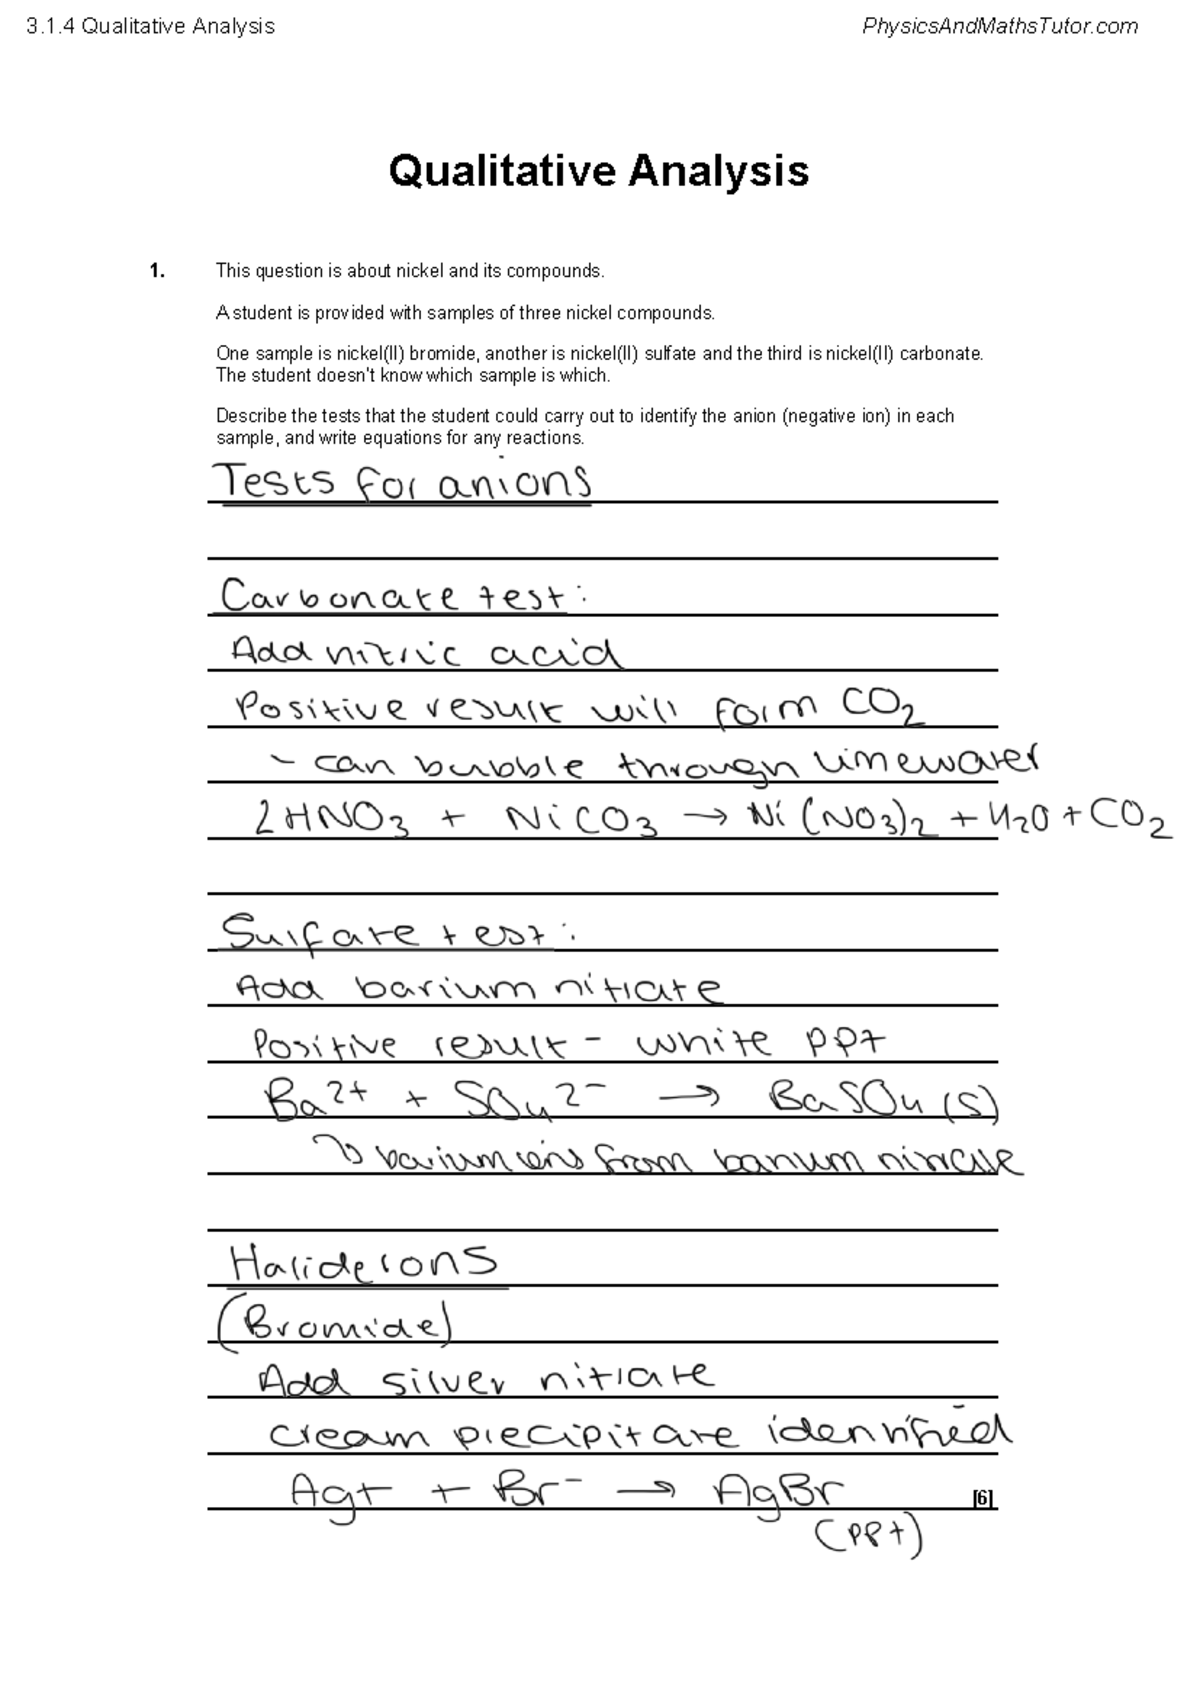 3.1.4 Qualitative Analysis PhysicsAndMathsTutor.com
Qualitative Analysis
1. This question is about nickel and its compounds.
A student is provided with samples of three nickel compounds.
One sample is nickel(II) bromide, another is nickel(II) sulfate and the third is nickel(II) carbonate.
The student doesn't know which sample is which.
Describe the tests that the student could carry out to identify the anion (negative ion) in each
sample, and write equations for any reactions.
Tests for anions
Carbonate test:
Add nitric acid
Positive result will form CO2
- can bubble through limewater
2HNO3 + NiCO3 → Ni(NO3)2 + H2O + CO2
Sulfate test:
Add barium nitrate
Positive result - white ppt
Ba2+ + SO4 2- → BaSO4 (s)
↳ barium ions from barium nitrate
Halide ions
(Bromide)
Add silver nitrate
cream precipitate identified
Ag+ + Br- → AgBr [6]
(ppt)